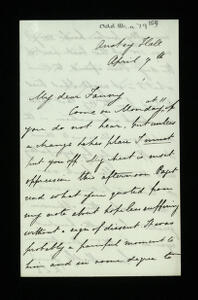 Add Ms. a 79
Anstey Hall
April 9th
My dear Fanny
Come on Monday at 11 if
you do not hear, but unless
a change takes place I must
put you off. My head is most
oppressive this afternoon Capt
read what you quoted from
my note about hopeless suffering
without a sign of dissent. It was
probably a painful moment to
him and in some degree to